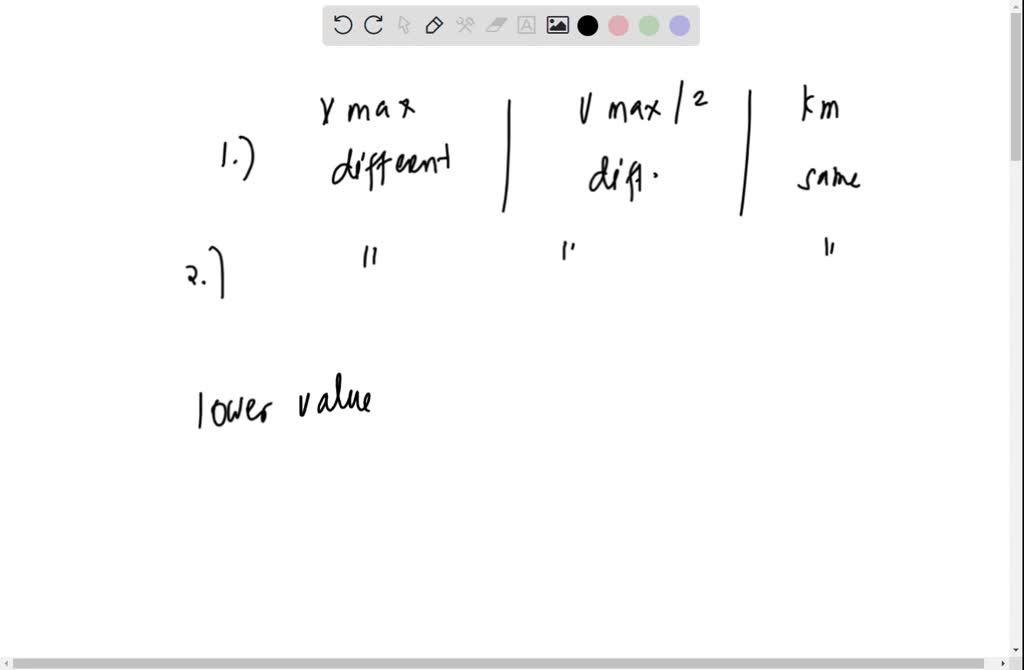 Vmax | Vmax/2 | km
1.) different | diff. | same
2.) " " "
lower value